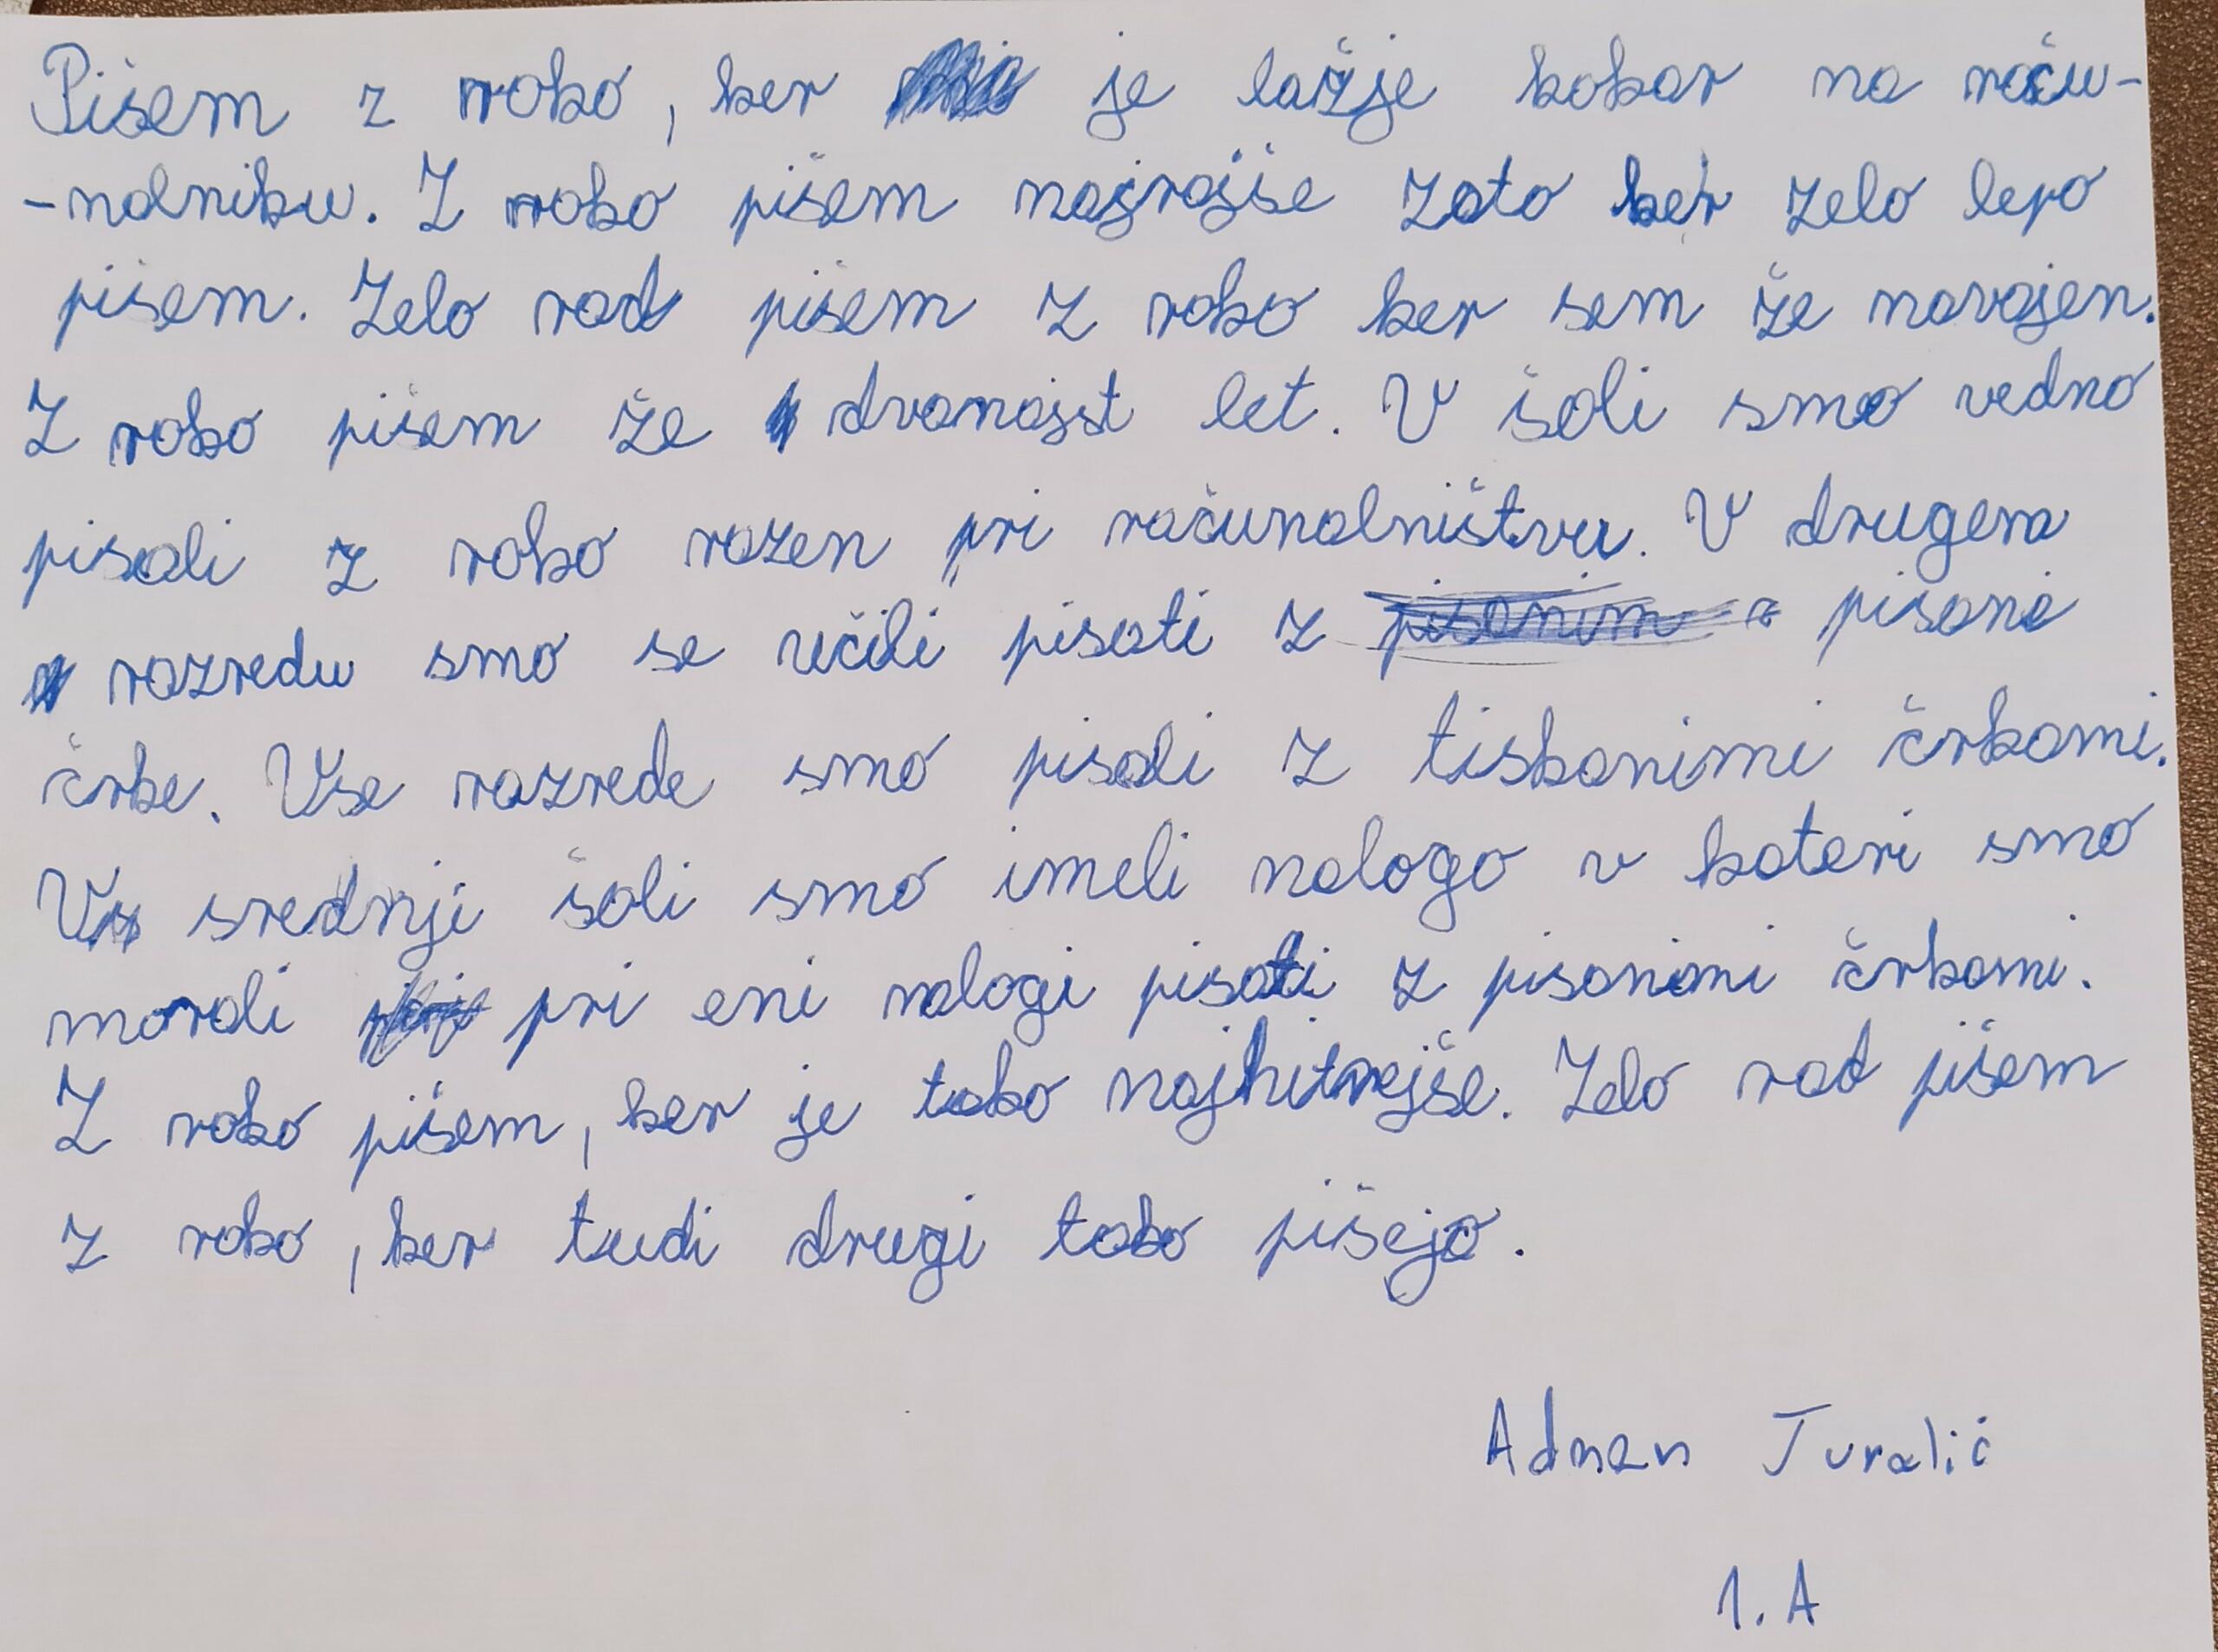 Pišem z roko, ker je lažje kokor na raču-
-nalniku. Z roko pišem najrajše zato ker zelo lepo
pišem. Zelo rad pišem z roko ker sem že navajen.
Z roko pišem že dvanajst let. V šoli smo vedno
pisali z roko razen pri računalništvu. V drugem
razredu smo se učili pisati z pisane
črke. Vse razrede smo pisali z tiskanimi črkami.
V srednji šoli smo imeli nalogo v kateri smo
morali pri eni nalogi pisati z pisanimi črkami.
Z roko pišem, ker je tako najhitrejše. Zelo rad pišem
z roko, ker tudi drugi tako pišejo.
Adnan Turalić
1. A